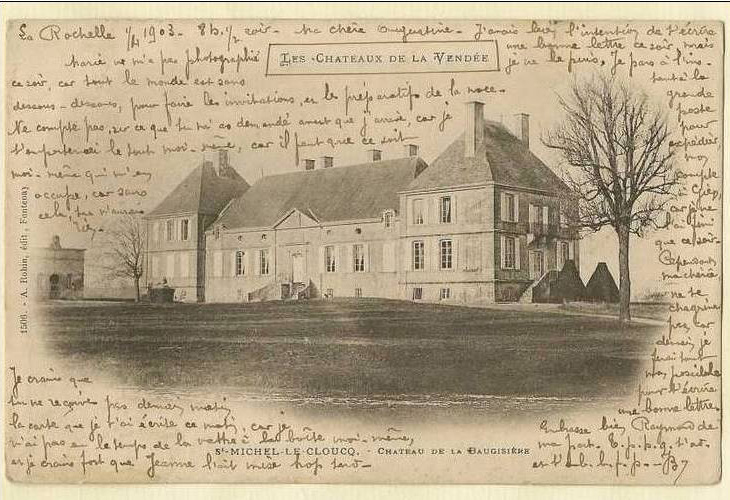 La Rochelle 1/4 1903. 8h. 1/2 soir. Ma chère Augustine. J'avais bien l'intention de t'écrire
une bonne lettre ce soir, mais
je ne le puis, je pars à l'ins-
tant à la
grande
poste
pour
expédier
mon
compte
car j'ai fini
que ce soir.
Cependant
ma chérie
ne te
chagrine
pas, car
demain je
ferai tout
mon possible
pour t'écrire
une bonne lettre.
Embrasse bien Raymond de
ma part.
LES CHATEAUX DE LA VENDÉE
Marie ne m'a pas photographié
ce soir, car tout le monde est sans
dessous-dessous, pour faire les invitations, et le préparatifs de la noce.
Ne compte pas, sur ce que tu m'as demandé avant que j'arrive, car je
t'emporterai le tout moi-même, car il faut que ce soit
moi-même qui m'en
occupe, car sans
cela, tu n'aurais
rien.
1506. - A. Robin, édit, Fontenay
Je crains que
tu ne reçoive pas demain matin
la carte que je t'ai écrite ce matin, car je
n'ai pas eu le temps de la mettre à la boîte moi-même,
et je crains fort que Jeanne l'ait mise trop tard.
St-MICHEL-LE-CLOUCQ. - CHATEAU DE LA BAUGISIÈRE